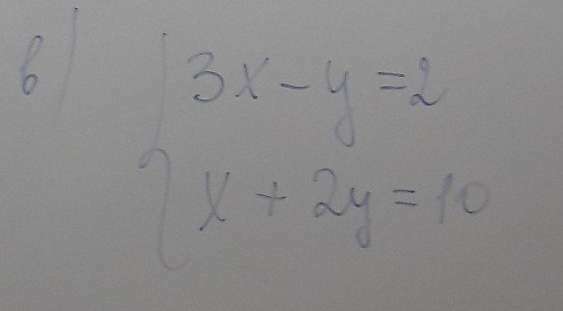 в) 3x - y = 2
x + 2y = 10